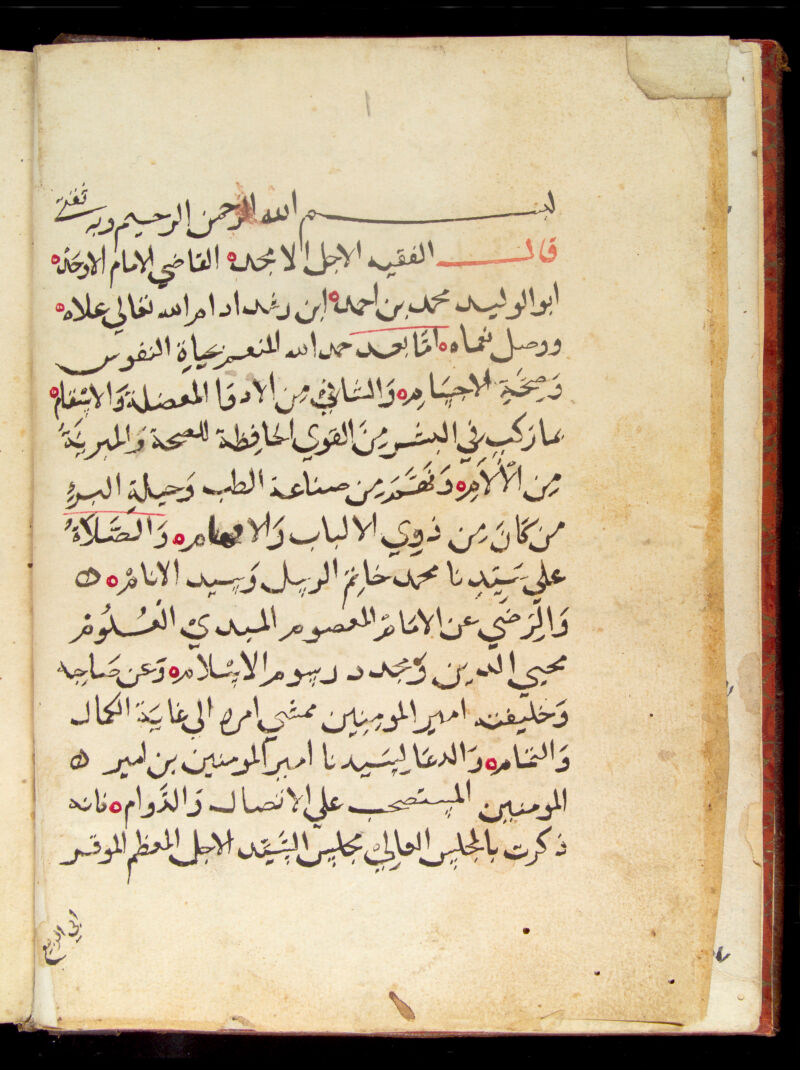 بسم الله الرحمن الرحيم وبه ثقتي
قال الفقيه الاجل الامجد القاضي الامام الاوحد
ابوالوليد محمد بن احمد ابن رشد ادام الله تعالي علاه
ووصل نعماه امّا بعد حمد الله المنعم بحياةِ النفوس
وَصِحَّةِ الاجسَامِ وَالشافيْ مِن الادوَا المعضلة وَالاسْقام
بما ركب في البشر مِنَ القوي الحافِظة للصحة وَالمبريَةُ
مِن الْالَامِ وَتَقَدَّمَ مِن صناعة الطب وَحيلةِ البرءِ
من كَانَ مِن ذوِي الالباب وَالافهام وَالصَّلَاةُ
علي سَيّدِنا محمد خاتِمْ الرسل وَسيد الانامْ
وَالِرّضَي عن الامَامْ المعصوم المهديْ المعْلُومْ
محيي الدين وَمجدد رسوم الاسْلام وَعن صَاحِبه
وَخليفته امير المومنِين ممشّي امره الي غايَة الكمال
وَالتمام وَالدعَا لسَيدنا امير المومنين بن امير
المومنين المستصحب علي الاتصال وَالدَّوام فانه
ذكرت بالمجلِس العالِيْ مجلِس السَّيّد الاجل المعظم الموقر
ابي الربيع